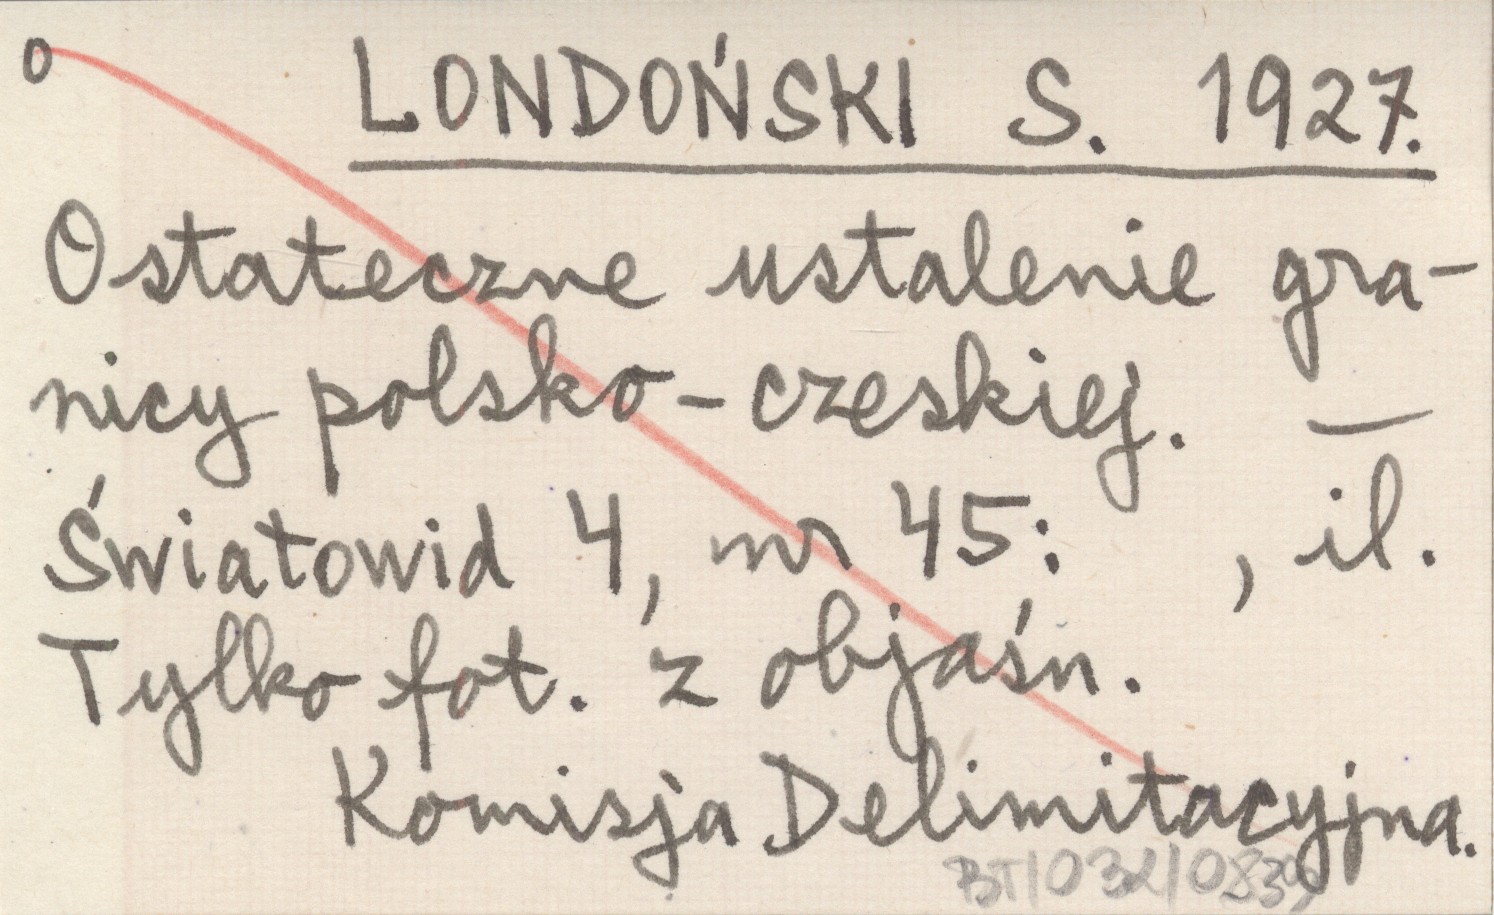 o LONDOŃSKI S. 1927.
Ostateczne ustalenie gra-
nicy polsko-czeskiej. —
Światowid 4, nr 45: , il.
Tylko fot. z objaśn.
Komisja Delimitacyjna.
BT/032/0839